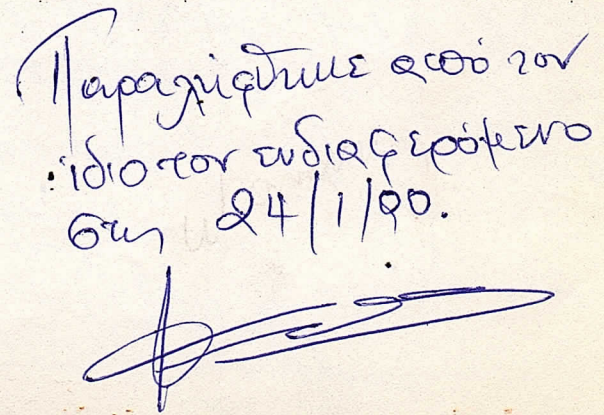 Παραλήφθηκε από τον
ίδιο τον ενδιαφερόμενο
στις 24/1/90.